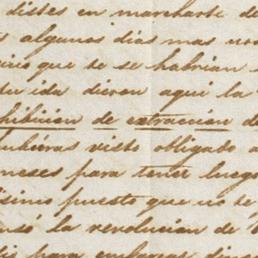 distes en marcharte de
s algunos dias mas nos
cirio que te se habrian
tu ida dieron aqui la
hibicion de estraccion de
ubieras visto obligado a
neses para tener luego
isimo puesto que no te
nsó la revolucion de
para